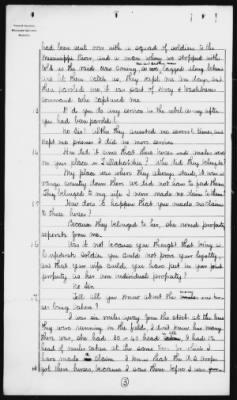 had been sent out with a squad of soldiers to the
Mississippi River, and in when they we stopped with
told in the road was coming, we lagged along behind
and let them catch us, they kept me ten days and
then paroled me, it was part of
command who captured me.
13 Q do you do any service in the rebel army after
you had been paroled?
No Sir! After they arrested me several times and
kept me prisoner I did no more service.
14 How did it come that these horses and mules were
on your place in Tallahatchie? Who did they belong to?
My place was where they always staid, it was a
range country down there we did not have to feed them
They belonged to my wife I never made no claim to them.
15 How does it happen that you made no claim
to these horses?
Because they belonged to her, she owned property
separate from me.
16 Was it not because you thought that being a
Confederate Soldier you could not prove your loyalty,
and that your wife could, you have put in your joint
property as her own individual property?
No Sir
17 Tell all you know about the mules and horses
being taken?
I was six miles away from the stock at the time
they were running in the field, I don't know how many
there was, she had 30 or 40 head, I had 12
head of mules taken at the same time for which I
have made no claim. I know that the U.S. troops
got these horses, because I saw them before I was
(3)